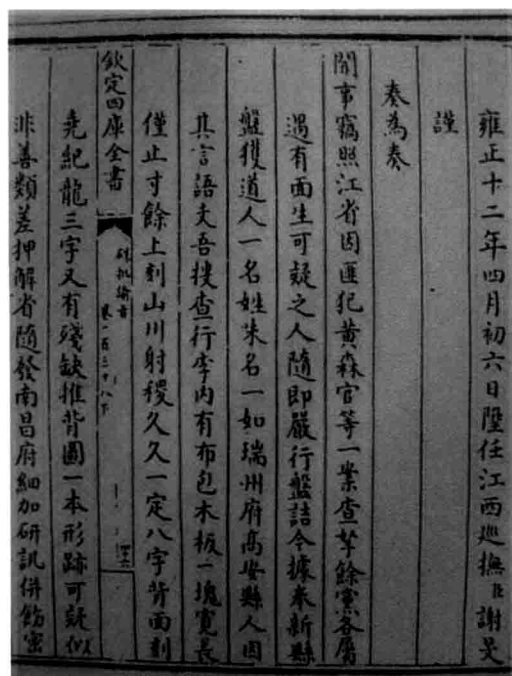 雍正十二年四月初六日陞任江西巡撫臣謝旻
謹
奏為奏
聞事竊照江省因匪犯黄森官等一案查拏餘黨各屬
遇有面生可疑之人隨即嚴行盤詰今據奉新縣
盤獲道人一名姓朱名一如瑞州府髙安縣人因
其言語支吾搜查行李内有布包木板一塊寛長
僅止寸餘上刻山川射稷久久一定八字背面刻
欽定四庫全書
硃批諭旨
卷一百三十八下
四十六
堯紀龍三字又有殘缺推背圖一本形跡可疑似
非善類差押解省隨發南昌府細加研訊併飭密